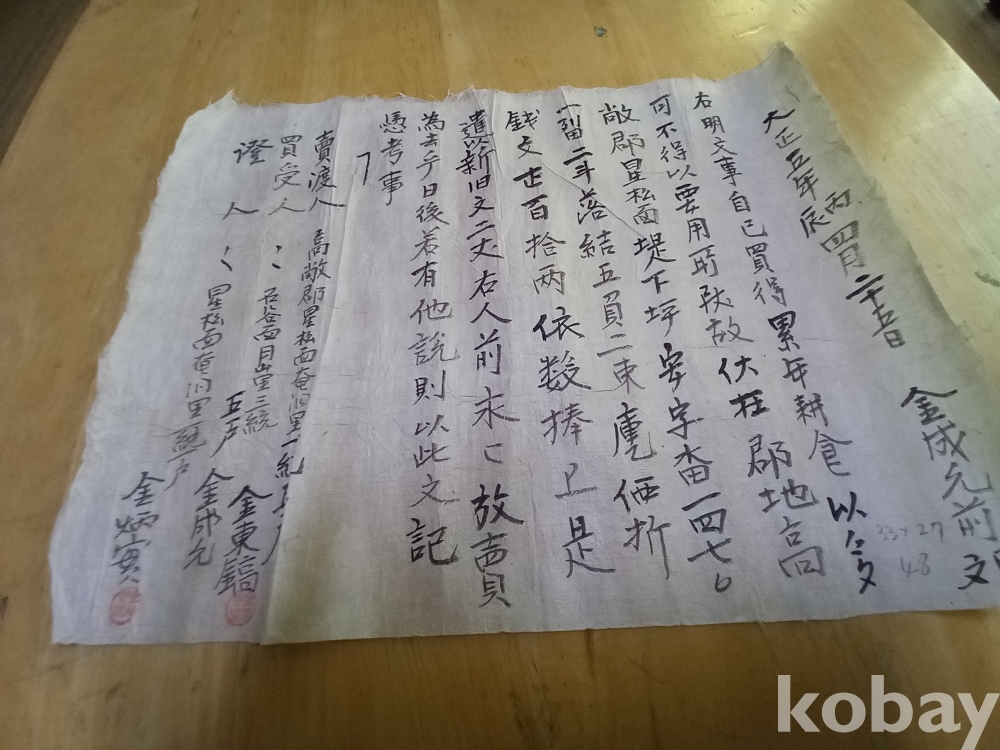 大正五年丙辰四月二十五日 金成允前 文
右明文事自己買得累年耕食以
可不得以要用所致故伏在郡地高
敞郡星松面堤下坪字畓一四七
二斗落結五負二束庫価折
錢文百拾两依数捧上是
遣以新旧文二丈右人前永〻放賣
為去乎日後若有他說則以此文記
憑考事
賣渡人 高敞郡星松面奄洞里一統 金東鎬
買受人 〻 石谷面月山里三統五户 金成允
證人 〻 星松面奄洞里 統户 金炳實
33×27
48
kobay